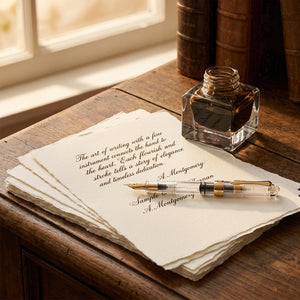 The art of writing with a fine
instrument connects the hand to
the heart. Each flourish and
stroke tells a story of elegance
and timeless dedication.
A. Montgomery
Sample
A. Montgomery